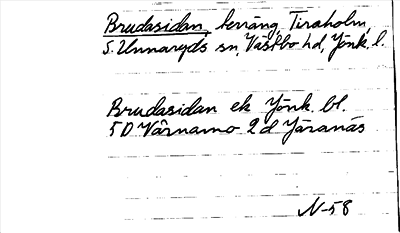 Brudasidan, terräng, Tiraholm,
S. Unnaryds sn, Västbo hd, Jönk. l.
Brudasidan ek Jönk. bl.
5D Värnamo 2d Järanäs
N-58